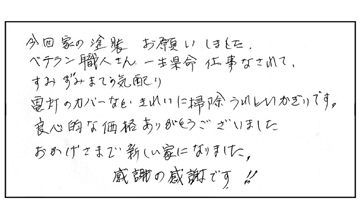 今回家の塗装 お願いしました.
ベテラン職人さん 一生県命 仕事なされて.
すみずみまでの気配り
電灯のカバーなど きれいに掃除 うれしいかぎりです。
良心的な価格ありがとうございました
おかげさまで新しい家になりました。
感謝の感謝です!!